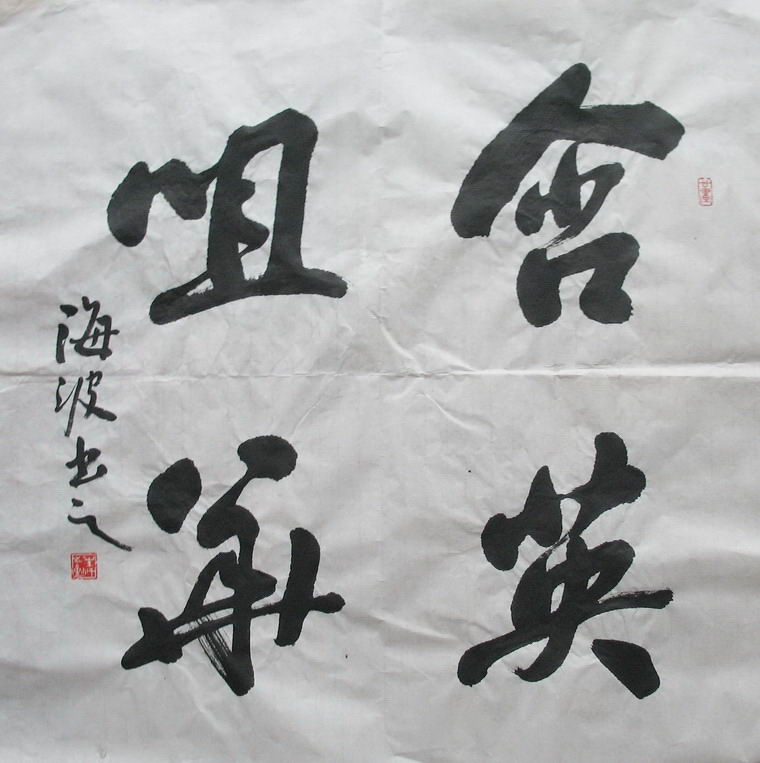 含英
咀華
海波书之